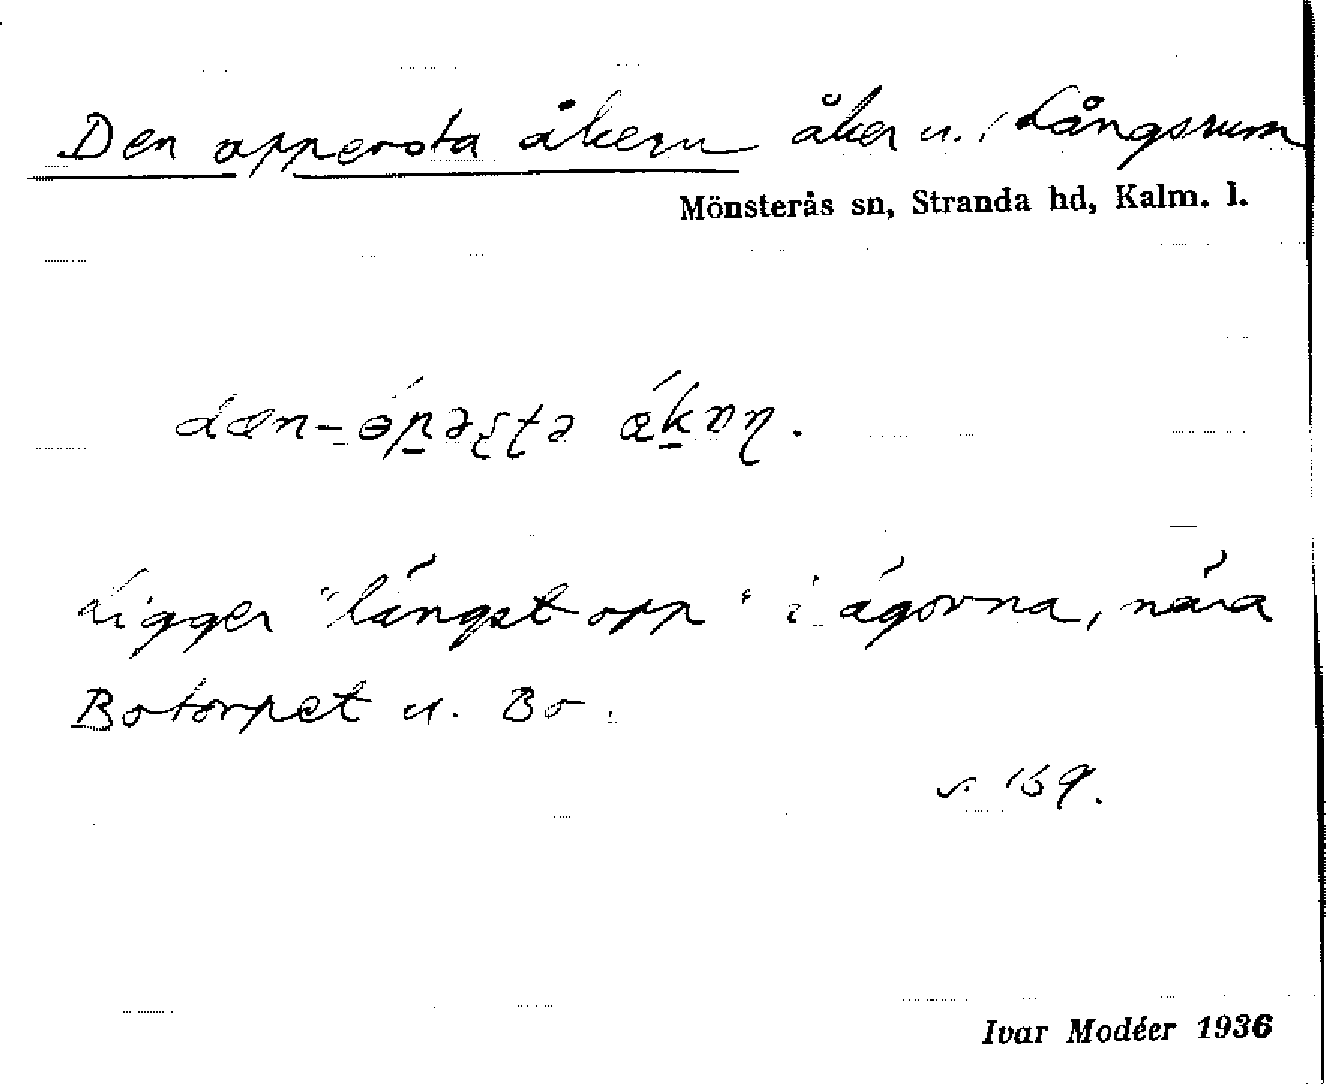 Den oppersta åkern åker u. Långsrum
Mönsterås sn, Stranda hd, Kalm. l.
Ligger "längst opp" i ägorna, nära
Botorpet u. Bo.
s. 159.
Ivar Modéer 1936